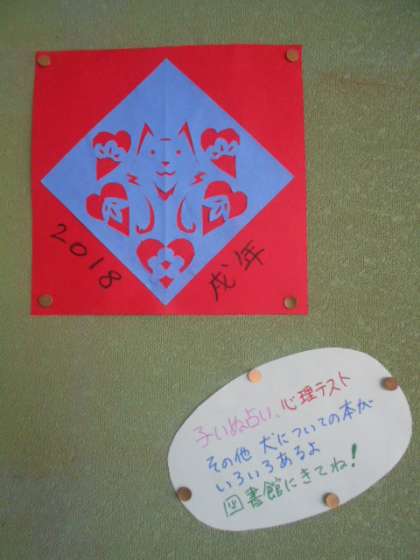 2018
戌年
子いぬ占い、心理テスト
その他 犬についての本が
いろいろあるよ
図書館にきてね!